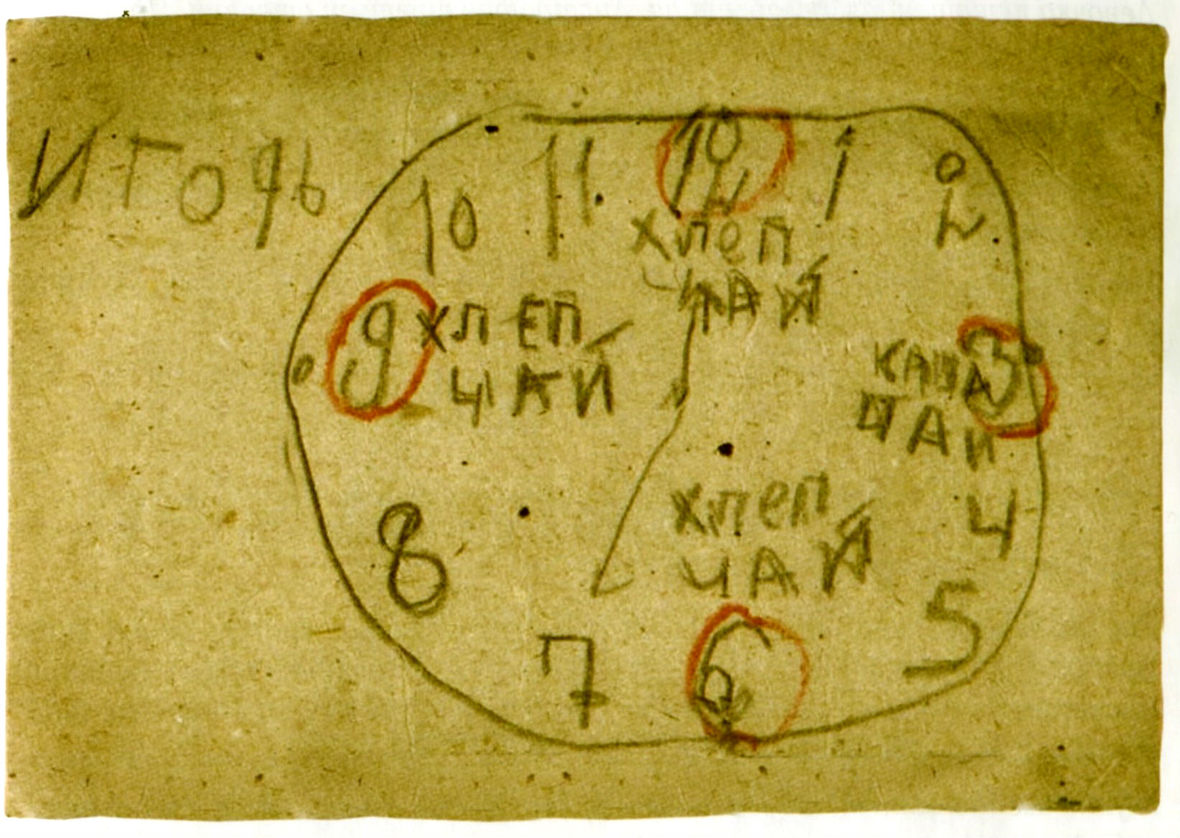 ИГОРЬ
11
12
1
2
10
ХЛЕП
ЧАЙ
9
ХЛЕП
ЧАЙ
3
КАША
ЧАЙ
4
8
ХЛЕП
ЧАЙ
5
7
6